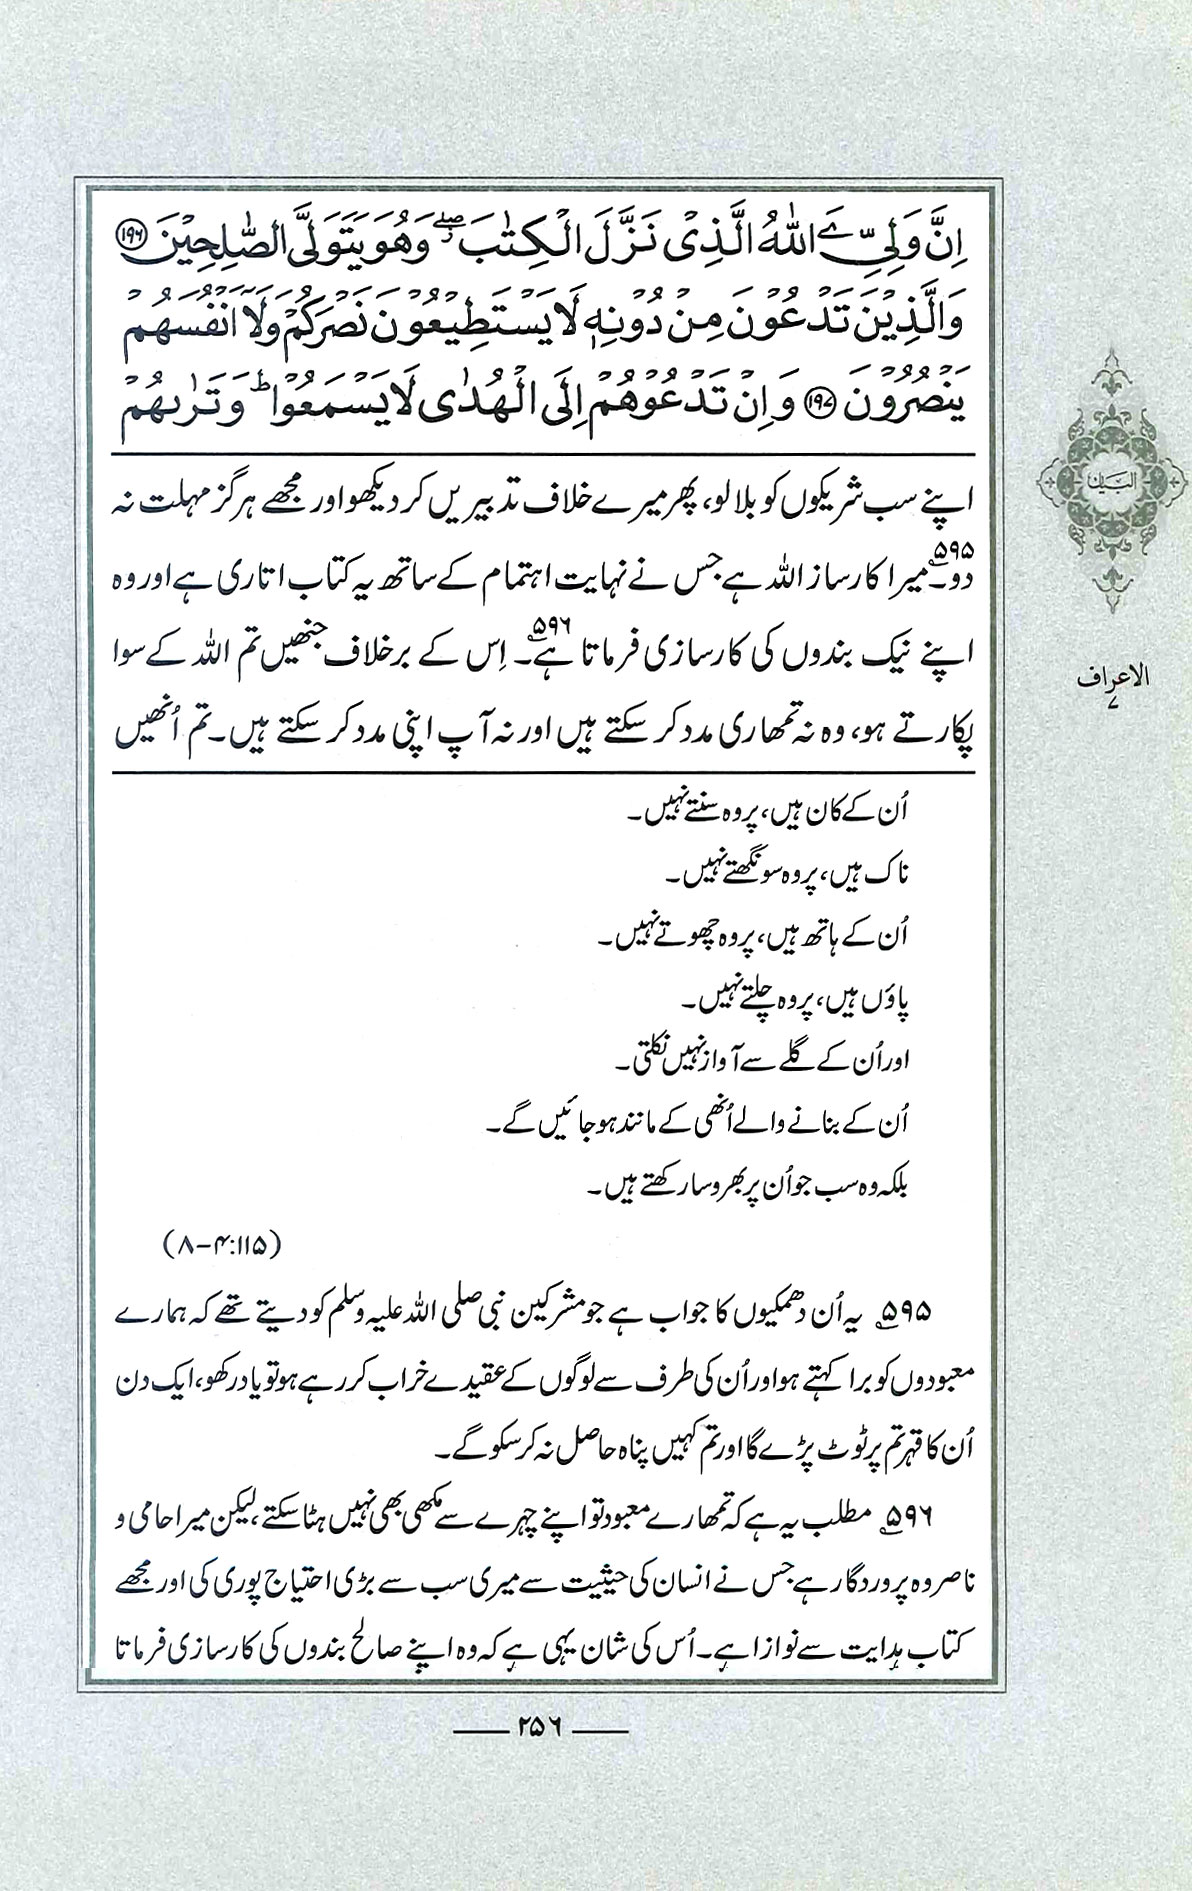 اِنَّ وَلِیِّ ےَ اللّٰهُ الَّذِیْ نَزَّلَ الْكِتٰبَ ۖ وَهُوَ یَتَوَلَّی الصّٰلِحِیْنَ ﴿۱۹۶﴾
وَالَّذِیْنَ تَدْعُوْنَ مِنْ دُوْنِهٖ لَا یَسْتَطِیْعُوْنَ نَصْرَكُمْ وَلَاۤ اَنْفُسَهُمْ
یَنْصُرُوْنَ ﴿۱۹۷﴾ وَاِنْ تَدْعُوْهُمْ اِلَی الْهُدٰی لَا یَسْمَعُوْا ؕ وَتَرٰىهُمْ
اپنے سب شریکوں کو بلا لو، پھر میرے خلاف تدبیریں کر دیکھو اور مجھے ہرگز مہلت نہ
دو۔۵۹۵ میرا کارساز اللہ ہے جس نے نہایت اہتمام کے ساتھ یہ کتاب اتاری ہے اور وہ
اپنے نیک بندوں کی کارسازی فرماتا ہے۔۵۹۶ اِس کے برخلاف جنھیں تم اللہ کے سوا
پکارتے ہو، وہ نہ تمھاری مدد کر سکتے ہیں اور نہ آپ اپنی مدد کر سکتے ہیں۔ تم اُنھیں
اُن کے کان ہیں، پر وہ سنتے نہیں۔
ناک ہیں، پر وہ سونگھتے نہیں۔
اُن کے ہاتھ ہیں، پر وہ چھوتے نہیں۔
پاؤں ہیں، پر وہ چلتے نہیں۔
اور اُن کے گلے سے آواز نہیں نکلتی۔
اُن کے بنانے والے اُنھی کے مانند ہو جائیں گے۔
بلکہ وہ سب جو اُن پر بھروسا رکھتے ہیں۔
(۱۱۵:۴-۸)
۵۹۵ یہ اُن دھمکیوں کا جواب ہے جو مشرکین نبی صلی اللہ علیہ وسلم کو دیتے تھے کہ ہمارے
معبودوں کو برا کہتے ہو اور اُن کی طرف سے لوگوں کے عقیدے خراب کر رہے ہو تو یاد رکھو، ایک دن
اُن کا قہر تم پر ٹوٹ پڑے گا اور تم کہیں پناہ حاصل نہ کر سکو گے۔
۵۹۶ مطلب یہ ہے کہ تمھارے معبود تو اپنے چہرے سے مکھی بھی نہیں ہٹا سکتے، لیکن میرا حامی و
ناصر وہ پروردگار ہے جس نے انسان کی حیثیت سے میری سب سے بڑی احتیاج پوری کی اور مجھے
کتاب ہدایت سے نوازا ہے۔ اُس کی شان یہی ہے کہ وہ اپنے صالح بندوں کی کارسازی فرماتا
البیان
الاعراف
۷
۲۵۶